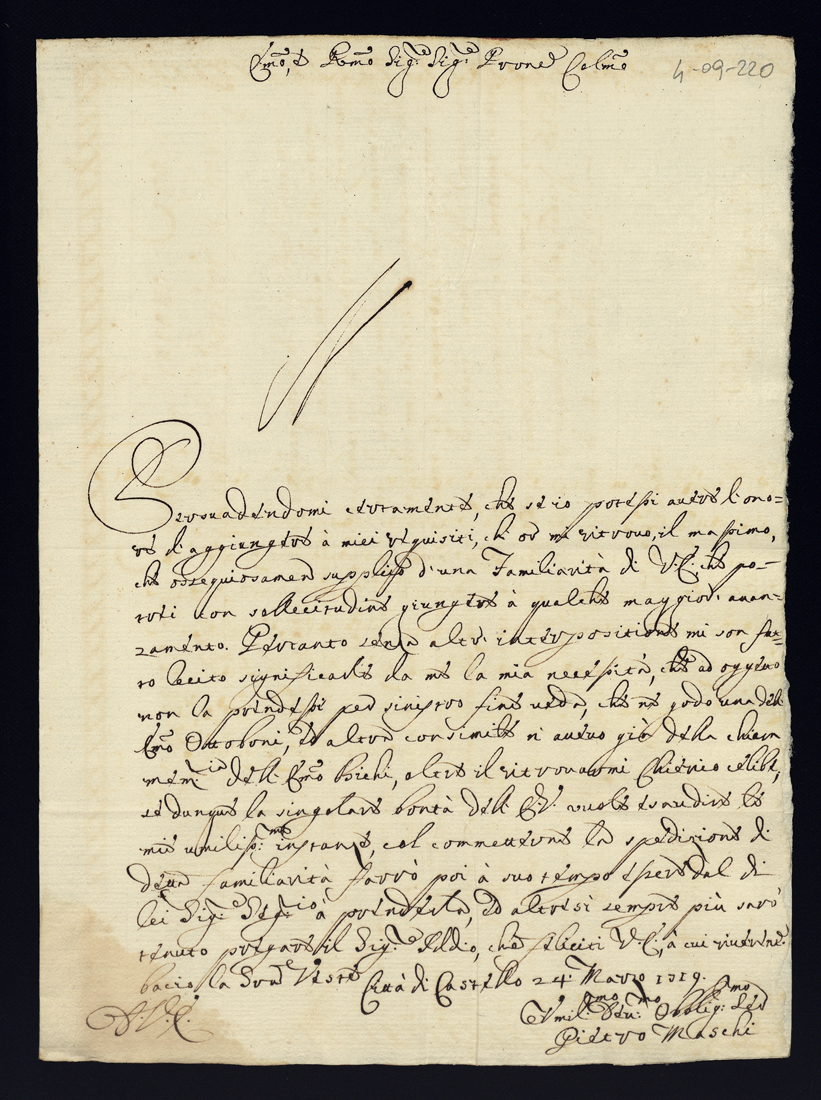 Em̃o, e Rm̃o Sig.re Sig.re Prone Colm̃o
4-09-220
Persuadendomi certamente, che se io potessi avere l'ono=
re di aggiungere à miei requisiti, che or mi ritrovo, il massimo,
che ossequiosamen supplico d'una Familiarità di V.E. che po-
trei con sollecitudine giungere à qualche maggior avan=
zamento. Pertanto senza altra interpositione mi son fat=
to lecito significarle da me la mia necessità, che ad oggetto
non la prendessi per sinistro fine veda, che ne godo una dell
Em̃o Ottoboni, ed altra consimile n' avevo già della chiara
mem.ria dell' Em̃o Bichi, oltre il ritrovarmi Chierico celibe,
se dunque la singolare bontà dell' E.V. vuole esaudire le
mie umiliss.me instanze, col commettere la spedizione di
detta familiarità farrò poi à suo tempo essere dal di
lei Sig.re Seg.rio à prenderla, ed altresì sempre più sarò
tenuto pregare il Sig.re Iddio, che feliciti V.E., à cui riverene.
bacio la Sacra Veste Città di Castello 24 Marzo 1719.
A.V.E.
Vmil.mo Deu.mo Obblig.mo Ser
Pietro Maschi